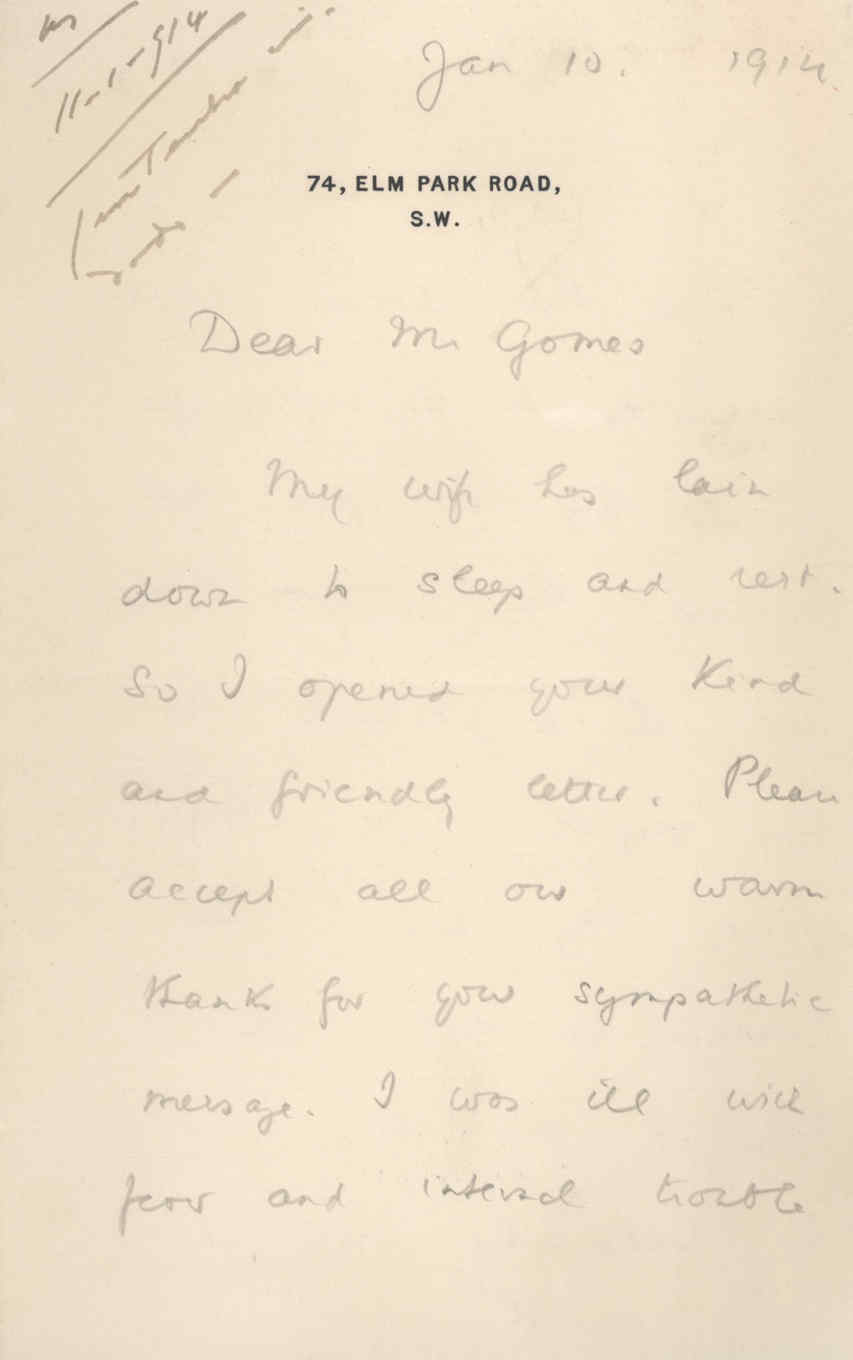 11-1-914
Jan 10. 1914.
74, ELM PARK ROAD,
S.W.
Dear Mr Gomes
My wife has lain
down to sleep and rest.
So I opened your kind
and friendly letter. Please
accept all our warm
thanks for your sympathetic
message. I was ill with
fever and internal trouble